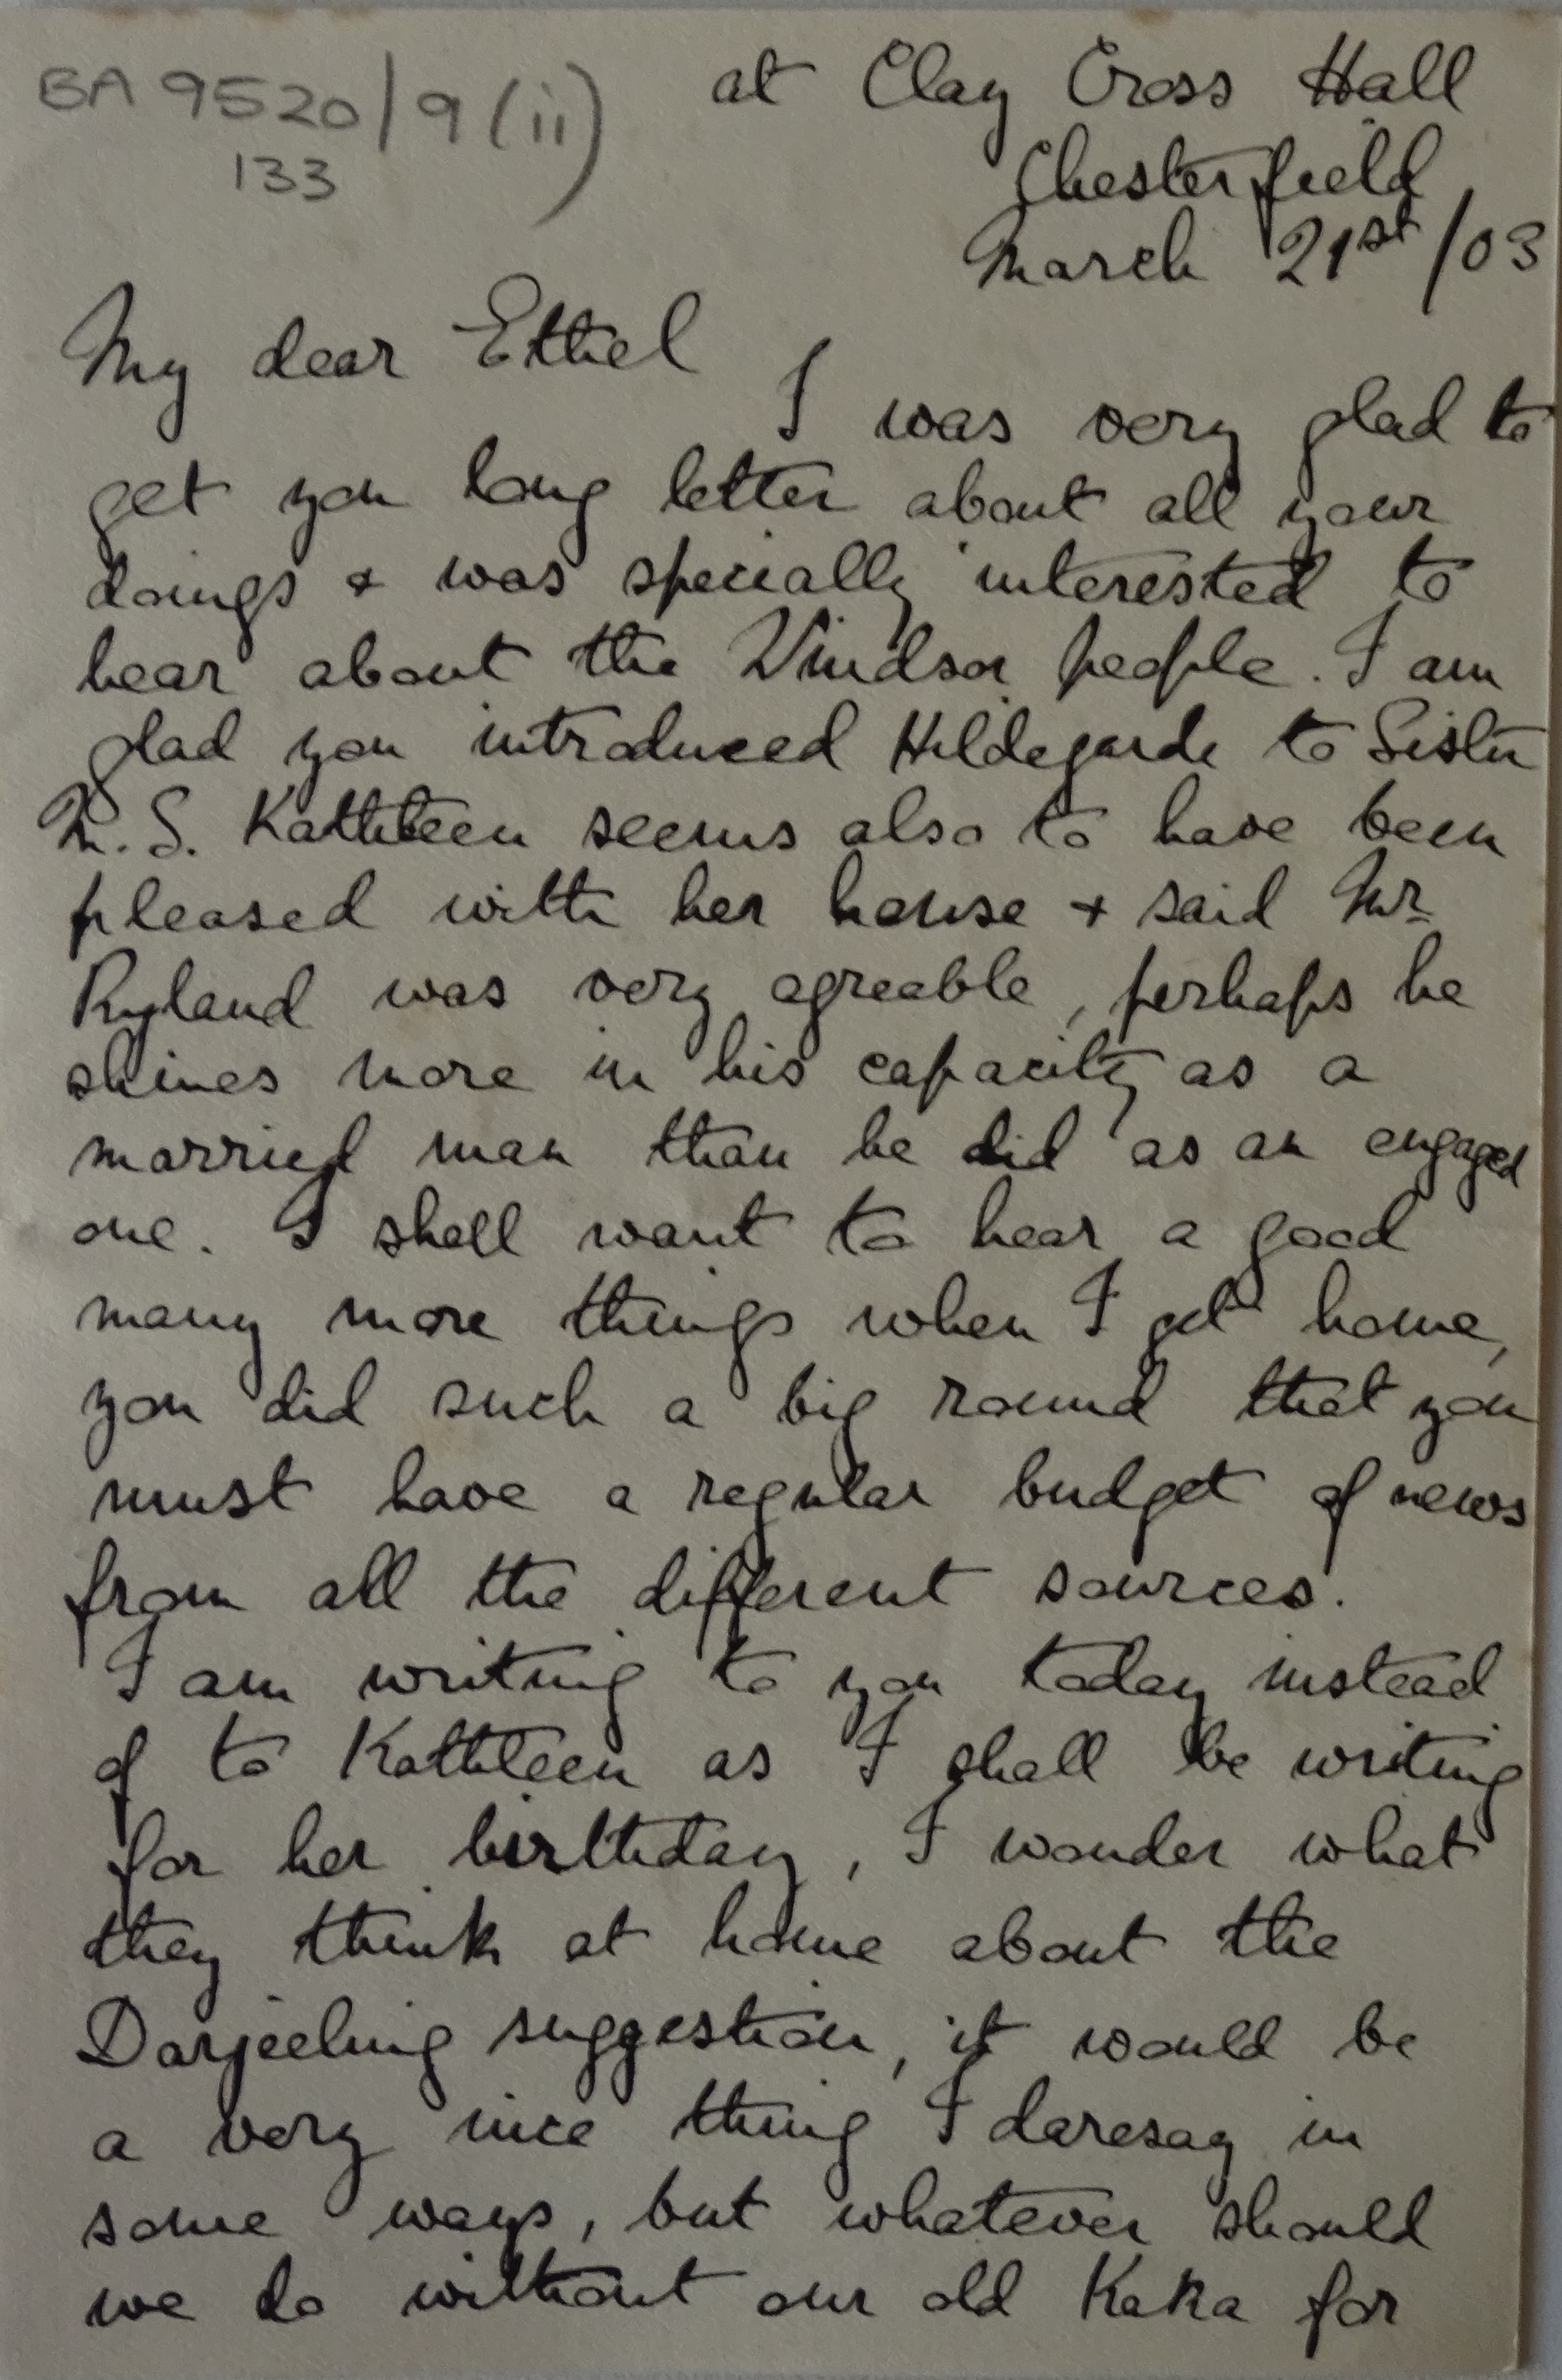 BA 9520/9(ii)
133
at Clay Cross Hall
Chesterfield
March 21st/03
My dear Ethel
I was very glad to
get you long letter about all your
doings & was specially interested to
hear about the Windsor people. I am
glad you introduced Hildegarde to Sister
M.S. Kathleen seems also to have been
pleased with her house & said Mr
Ryland was very agreable, perhaps he
shines more in his capacity as a
married man than he did as an engaged
one. I shall want to hear a good
many more things when I get home,
you did such a big round that you
must have a regular budget of news
from all the different sources.
I am writing to you today instead
of to Kathleen as I shall be writing
for her birthday, I wonder what
they think at home about the
Darjeeling suggestion, it would be
a very nice thing I daresay in
some ways, but whatever should
we do without our old Kaka for